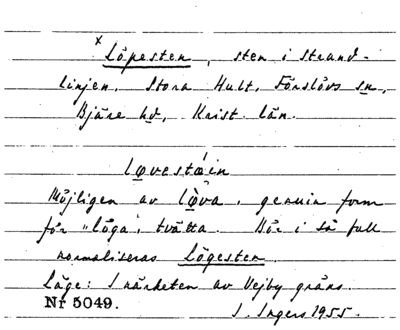 x Löpesten, sten i strand-
linjen. Stora Hult, Förslövs sn,
Bjäre hd, Krist. län.
løvestæin
Möjligen av lòva, genuin form
för "löga", tvätta. Bör i så fall
normaliseras Lögesten.
Läge: I närheten av Vejby gräns.
Nr 5049.
I. Ingers 1955.